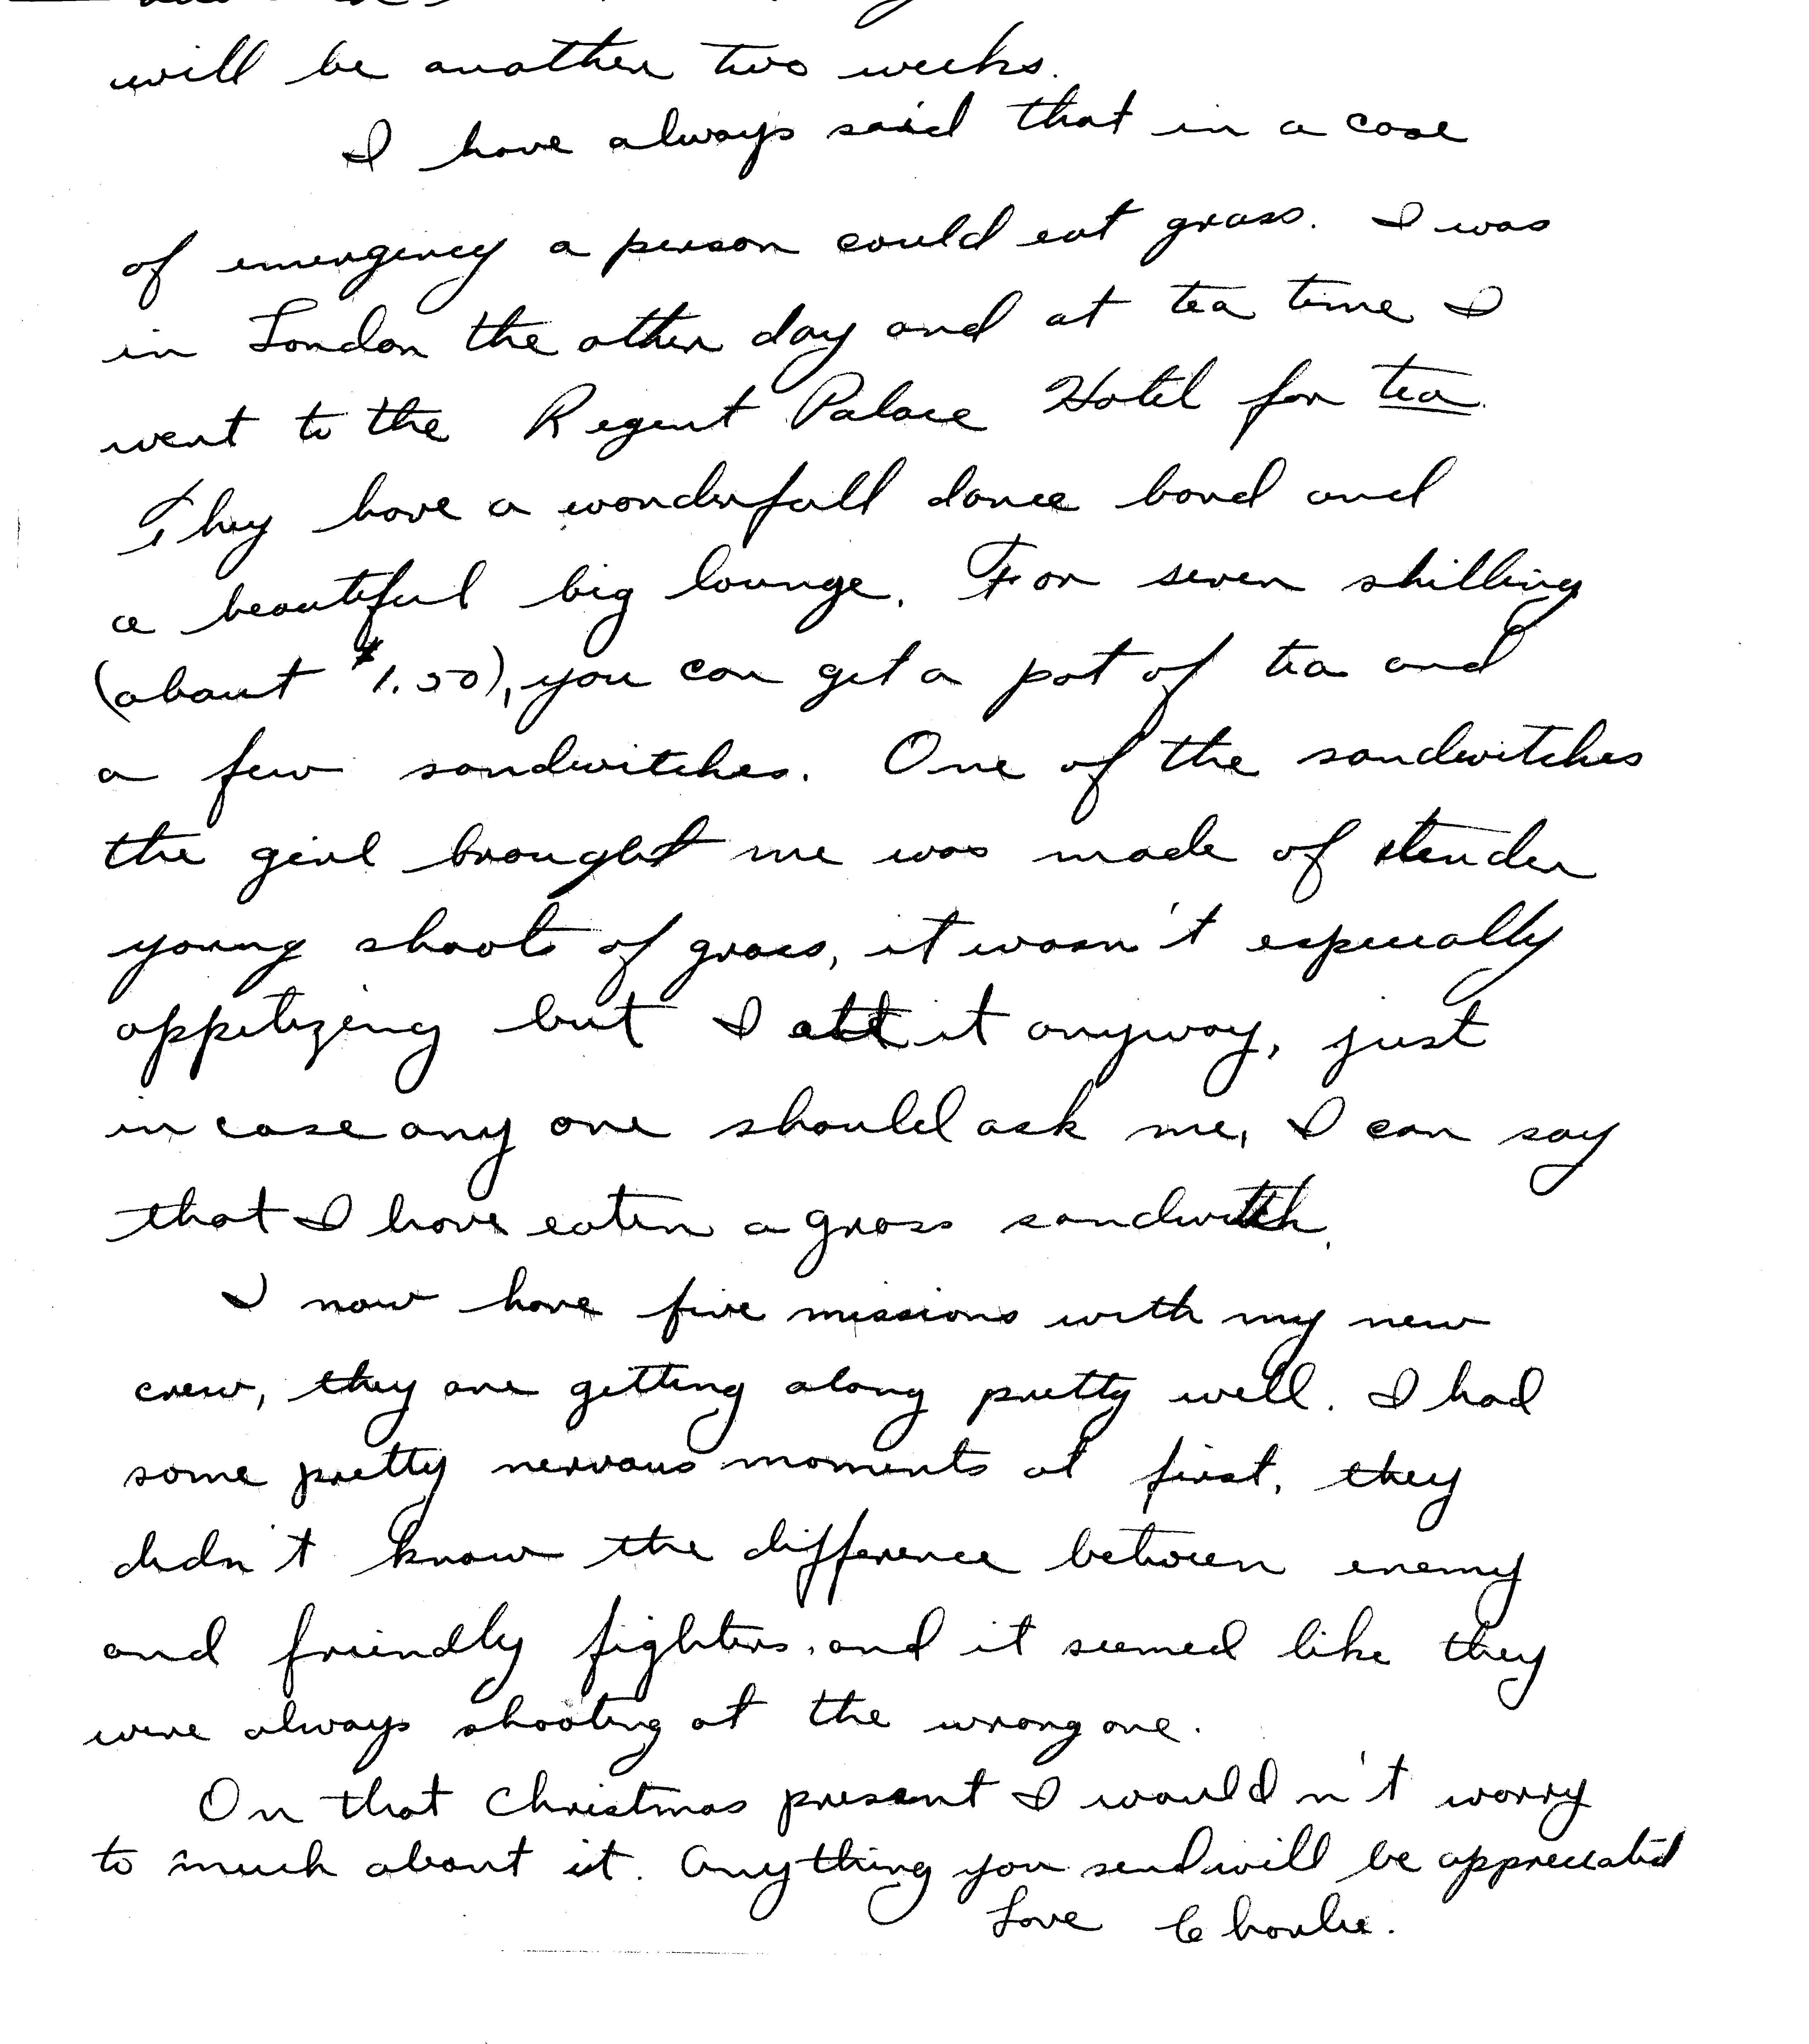 will be another two weeks.
I have always said that in a case
of emergency a person could eat grass. I was
in London the other day and at tea time I
went to the Regent Palace Hotel for tea.
They have a wonderfull dance band and
a beautiful big lounge. For seven shilling
(about $1.50), you can get a pot of tea and
a few sandwitches. One of the sandwitches
the girl brought me was made of tender
young shoots of grass, it wasn't especially
appetizing but I ate it anyway, just
in case any one should ask me, I can say
that I have eaten a grass sandwitch.
I now have five missions with my new
crew, they are getting along pretty well. I had
some pretty nervous moments at first, they
didn't know the difference between enemy
and friendly fighters, and it seemed like they
were always shooting at the wrong one.
On that Christmas present I wouldn't worry
to much about it. Anything you send will be appreciated
Love Charlie.